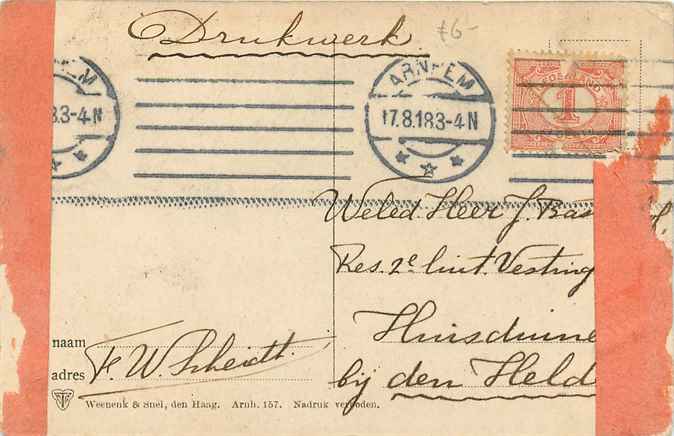 Drukwerk
£6-
ARNHEM
8.3-4N
ARNHEM
17.8.18 3-4N
NEDERLAND
1
Weled. Heer J. Bas
Res. 2e luit. Vesting
Huisduine
bij den Held
naam
adres F. W. Scheidt.
Weenenk & Snel, den Haag. Arnh. 157. Nadruk verboden.